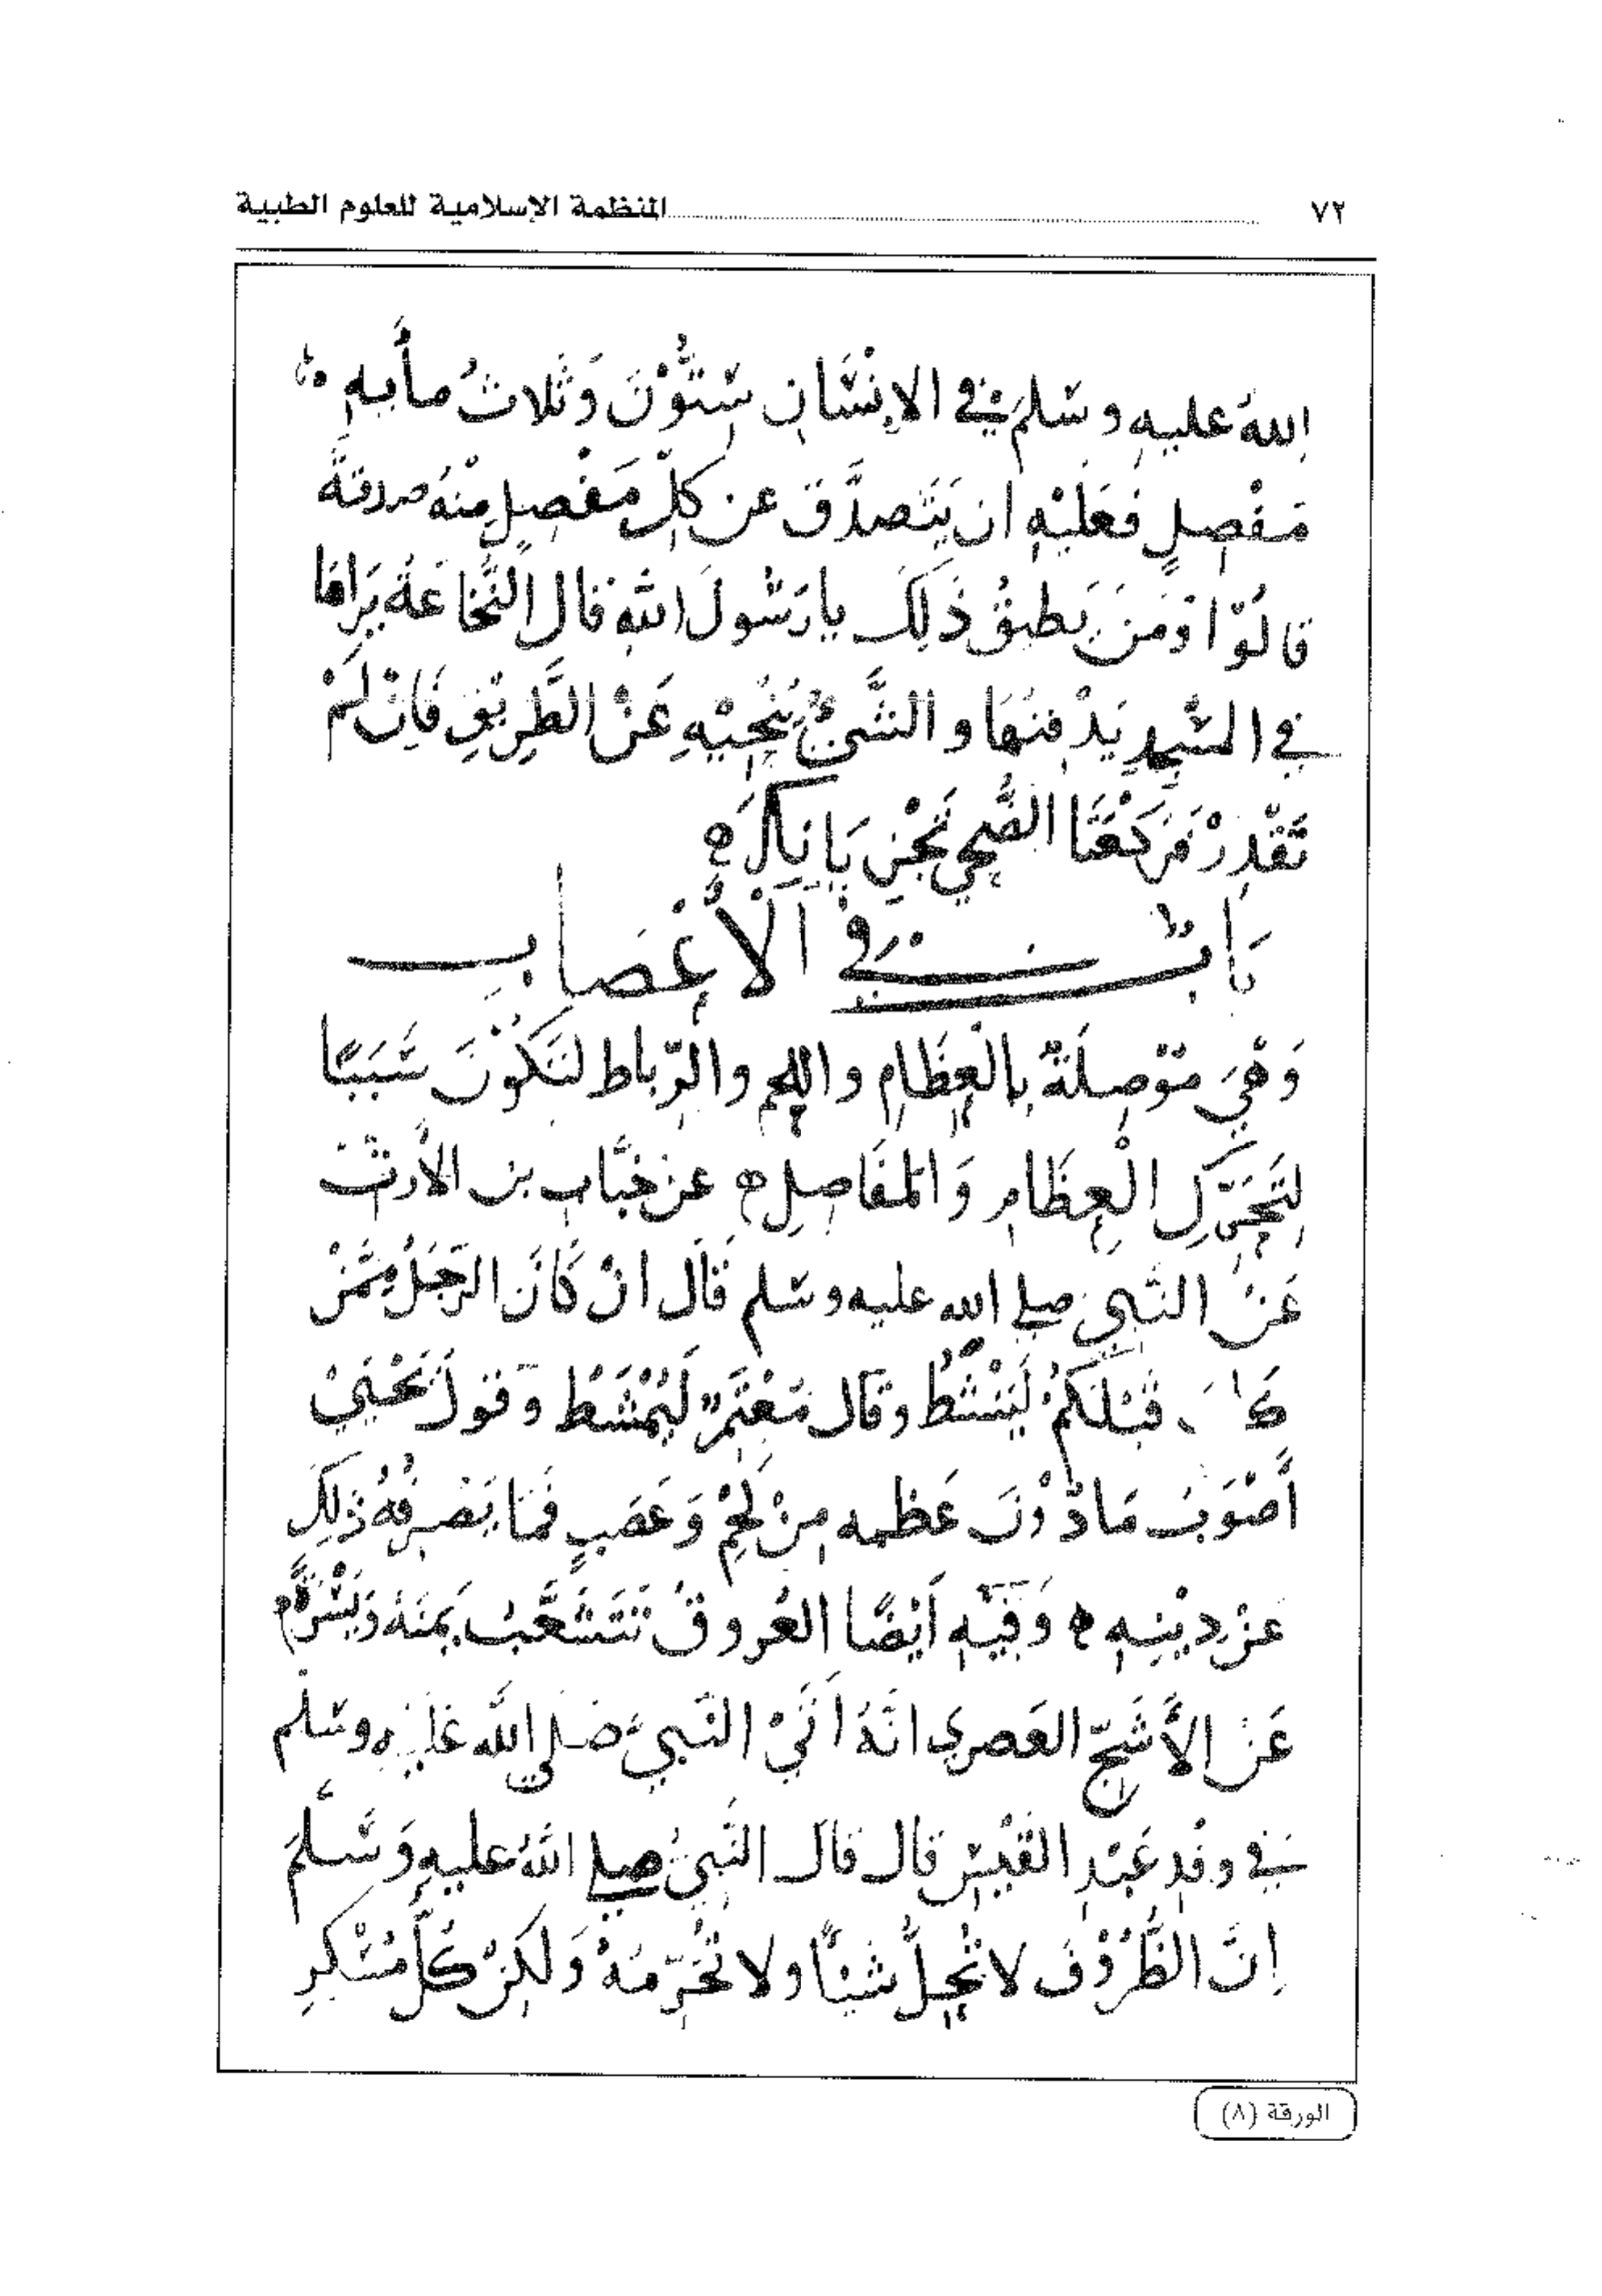 ٧٢ المنظمة الإسلامية للعلوم الطبية
اللهُ عليهِ وسَلمَ في الإِنسَانِ سِتُّوْنَ وَثَلاثُ مأيهِ
مَفْصِلٍ فَعَلَيْهِ ان يَتَصدَّقَ عن كلِّ مَفْصِلٍ مِنْهُ صدقةً
قالُوْا وَمَنَ يَطيقُ ذَلِكَ يا رَسُولَ اللهِ قال النُّخاعَةُ يَراهَا
في المسْجِدِ يَدْفنهَا والشَّيْءُ يُنْحِيْهِ عَنْ الطَّرِيْقِ فَإِنْ لَمْ
تَقْدِرْ فَرَكْعَتَا الضُّحي تَجْزِيَانِكَ
بَابٌ في الأَعْصابِ
وَهْيَ مُوْصِلَةٌ بِالْعِظَامِ واللحمِ والرِّباط لتَكُوْنَ سَبَبًا
لِتَحَرّكِ الْعِظَامِ وَالمفَاصِلِ عن خبَّابِ بن الأَرتّ
عَنْ النَّبِي صلى الله عليه وسَلم قَالَ انْ كَانَ الرَّجُلُ مِمَّنْ
كَانَ قَبْلَكُمْ لَيُنْشَطُ وقال مُعْتَمِرٌ لَيُمْشَطُ وقولُ يَحْيَىْ
أَصْوَبُ مَا دُوْنَ عَظمِهِ مِنْ لَحْمٍ وَعَصَبٍ فَمَا يَصْرِفُهُ ذَلِكَ
عنْ دِيْنِهِ وَفِيْهِ أَيْضًا العُروقُ تَتَشَعَّبُ يَمْنَةً وَيَسْرَةً
عَنْ الأَشَجّ العَصري انَّهُ اتَىْ النَّبِيَّ صَلى اللَّه عَليْهِ وسَلم
في وفدِ عَبْدِ القَيْسِ قال قال النَّبيُ صلى اللَّهُ عليهِ وَسَّلمَ
إِنَّ الظُّرُوْفَ لا تُحِلُّ شيْئًا ولا تُحَرّمَهُ وَلَكِنْ كُلُّ مُسْكِرٍ
الورقة (٨)